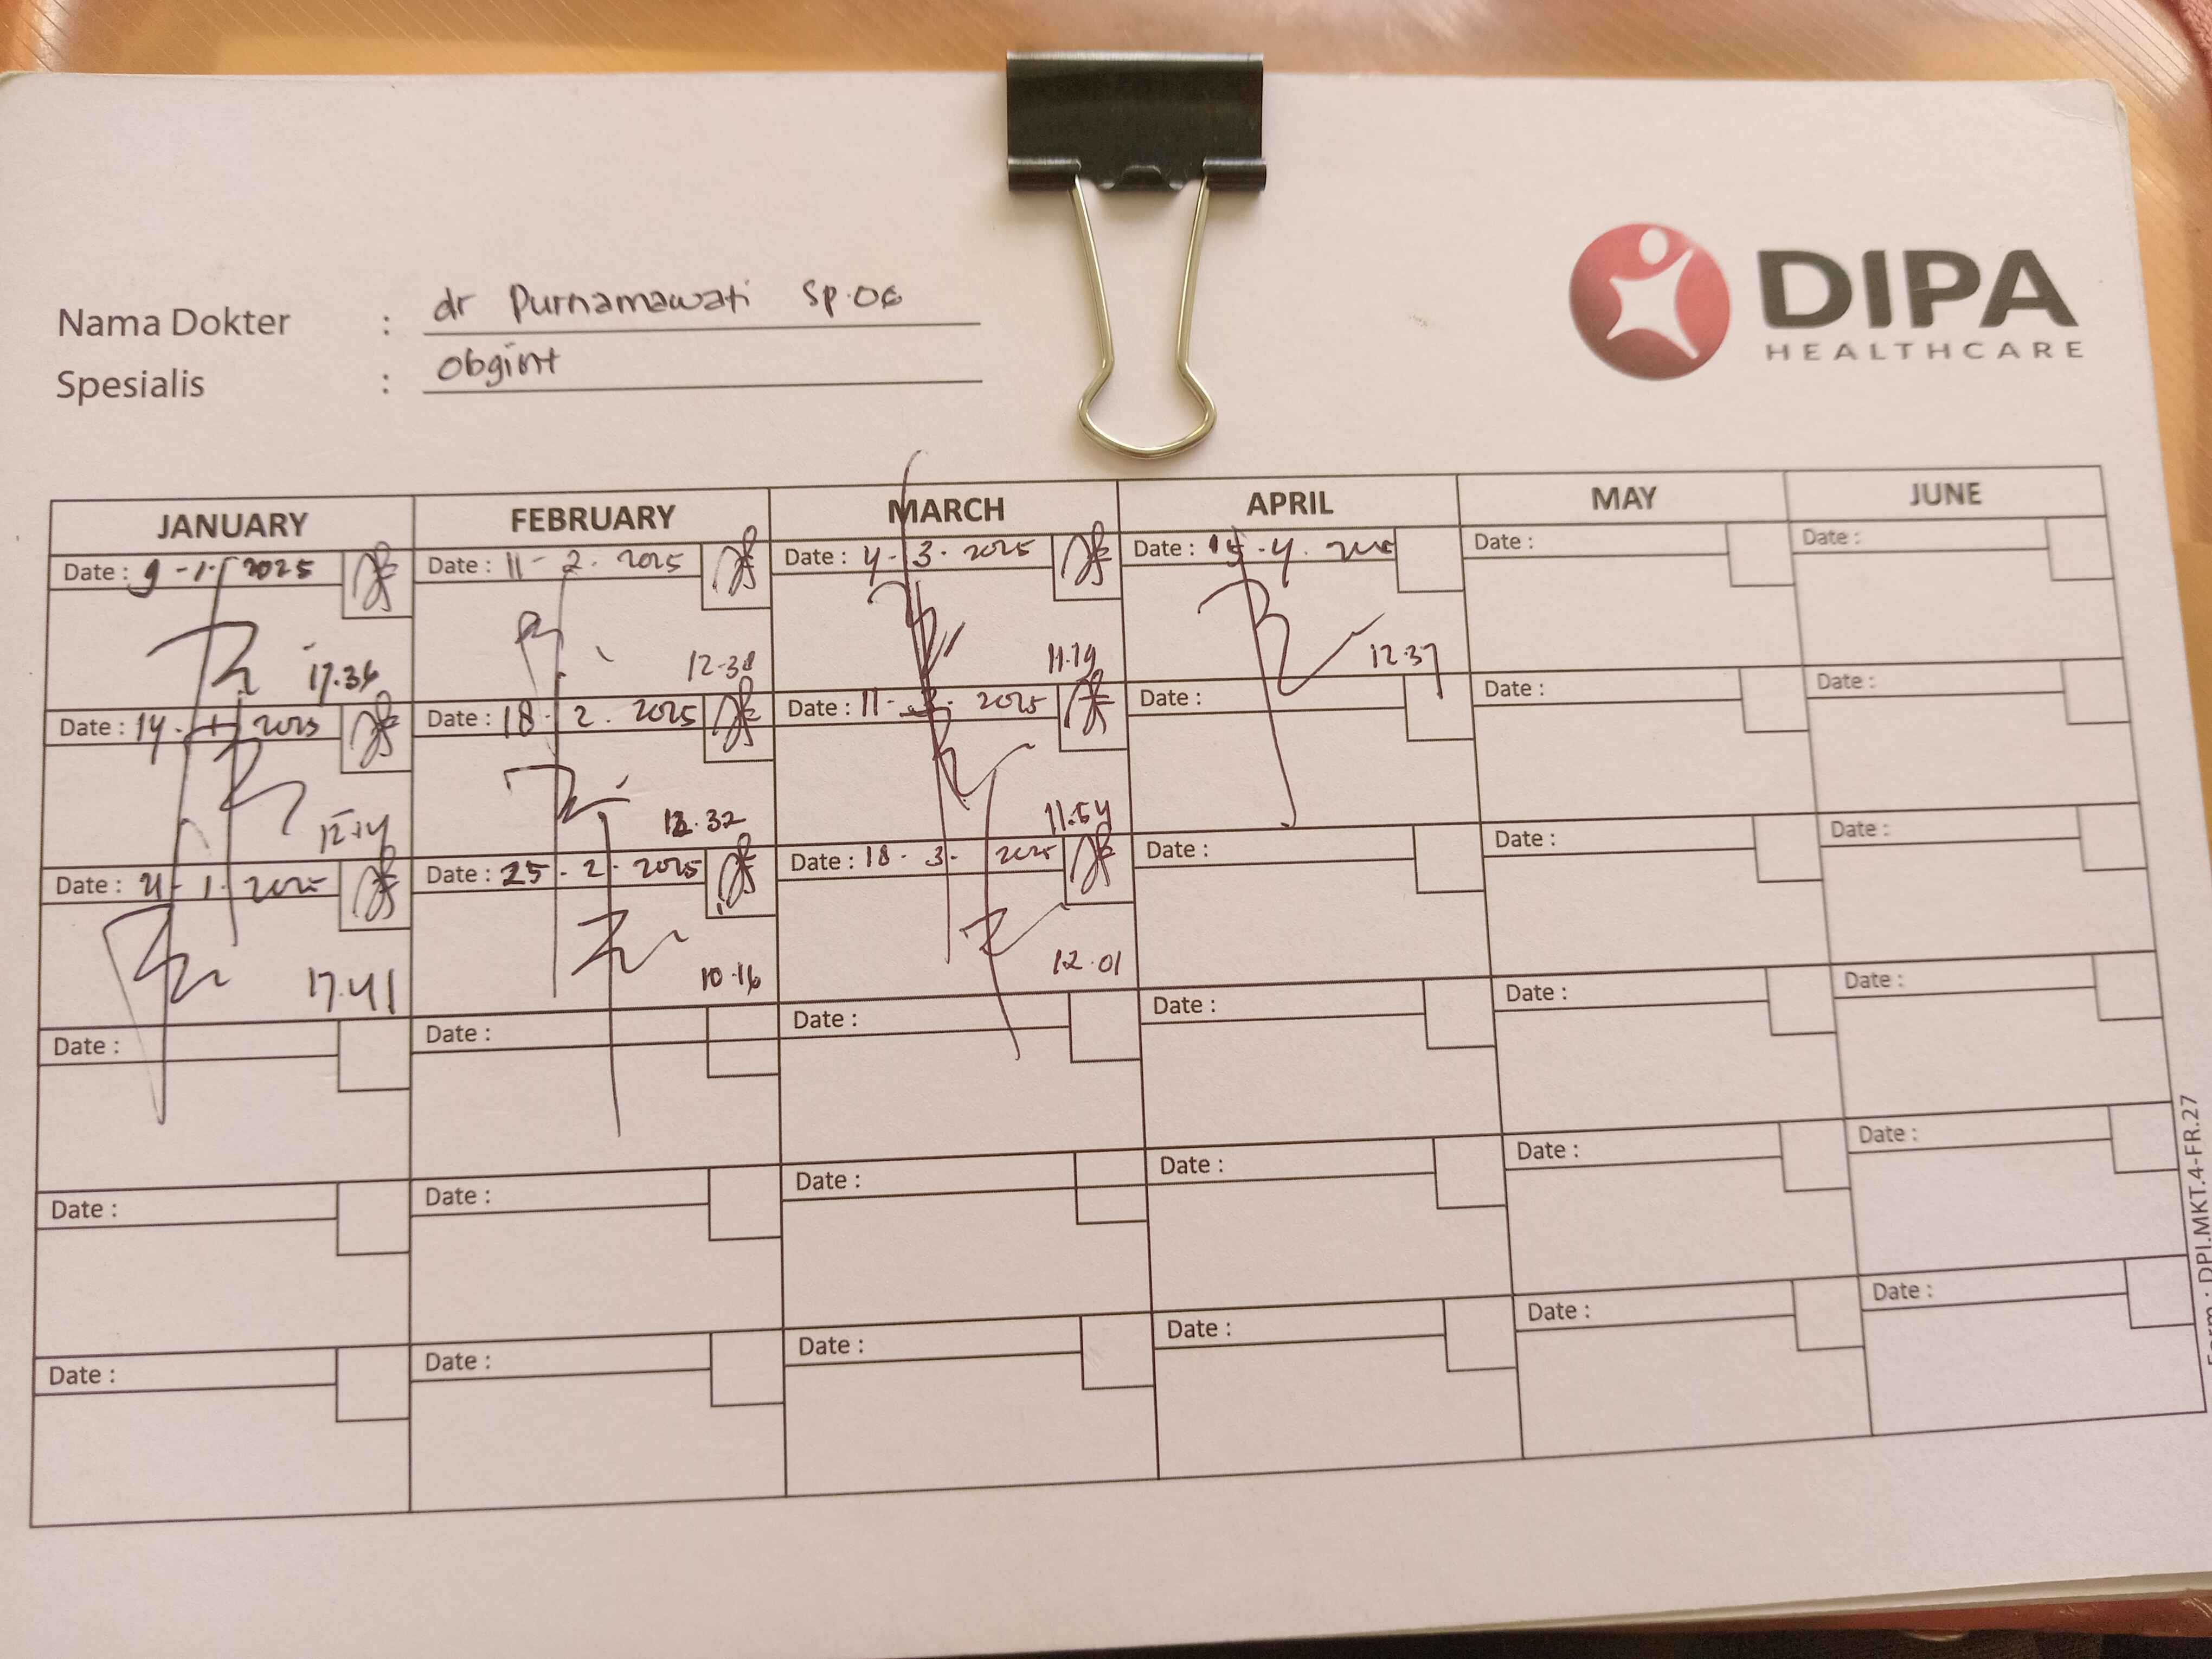 Nama Dokter : dr Purnamawati Sp.OG
Spesialis : Obgin
DIPA
HEALTHCARE
JANUARY FEBRUARY MARCH APRIL MAY JUNE
Date : 9-1-2025 Date : 11-2.2025 Date : 4-3.2025 Date : 15-4. Date : Date :
17.36 12-38 11.19 12.37
Date : 14.1.2025 Date : 18-2.2025 Date : 11-3.2025 Date : Date : Date :
12.14 12.32 11.54
Date : 21-1.2025 Date : 25-2-2025 Date : 18-3-2025 Date : Date : Date :
17.41 10.16 12.01
Date : Date : Date : Date : Date : Date :
Date : Date : Date : Date : Date : Date :
Date : Date : Date : Date : Date : Date :
Form : DPI.MKT.4-FR.27